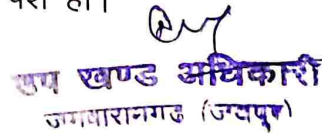 पेश हो।
उप खण्ड अधिकारी
जमवारामगढ (जयपुर)